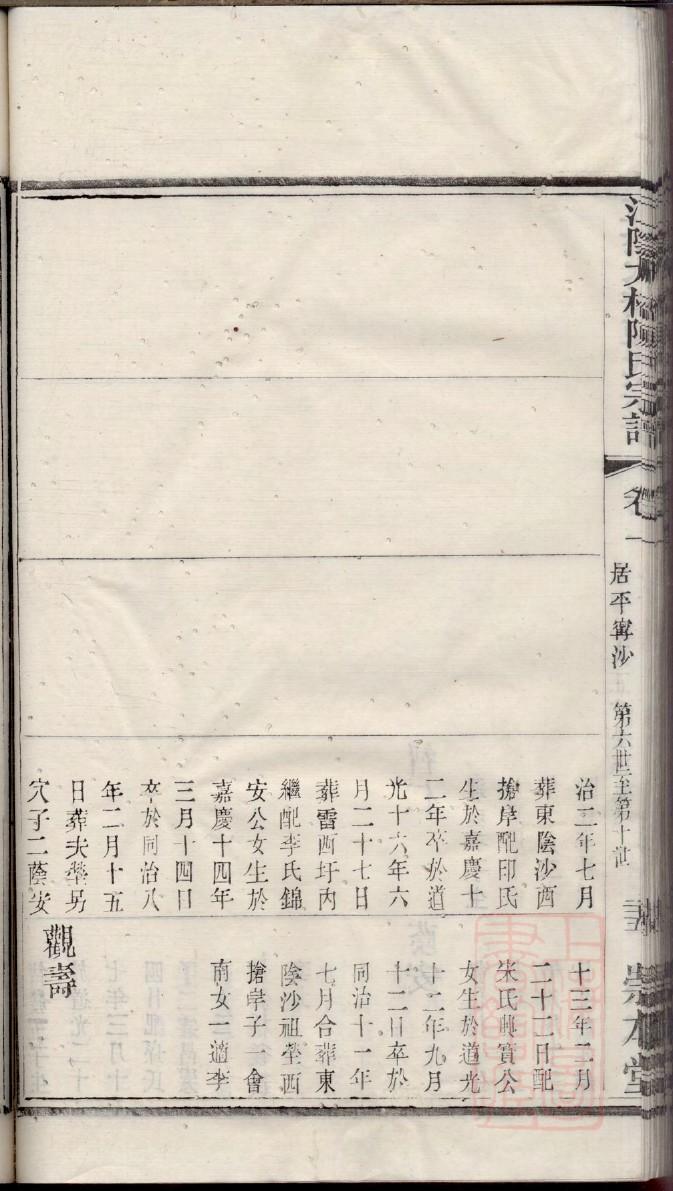 江陰大橋陳氏宗譜
卷一
居平甯沙
第六世至第十世
崇本堂
治二年七月
葬東陰沙西
搶岸配印氏
生於嘉慶十
二年卒於道
光十六年六
月二十七日
葬雷酉圩內
繼配李氏錦
安公女生於
嘉慶十四年
三月十四日
卒於同治八
年二月十五
日葬夫塋另
穴子二蔭安
十三年二月
二十二日配
朱氏興寶公
女生於道光
十二年九月
十二日卒於
同治十一年
七月合葬東
陰沙祖塋西
搶岸子一會
南女一適李
觀壽